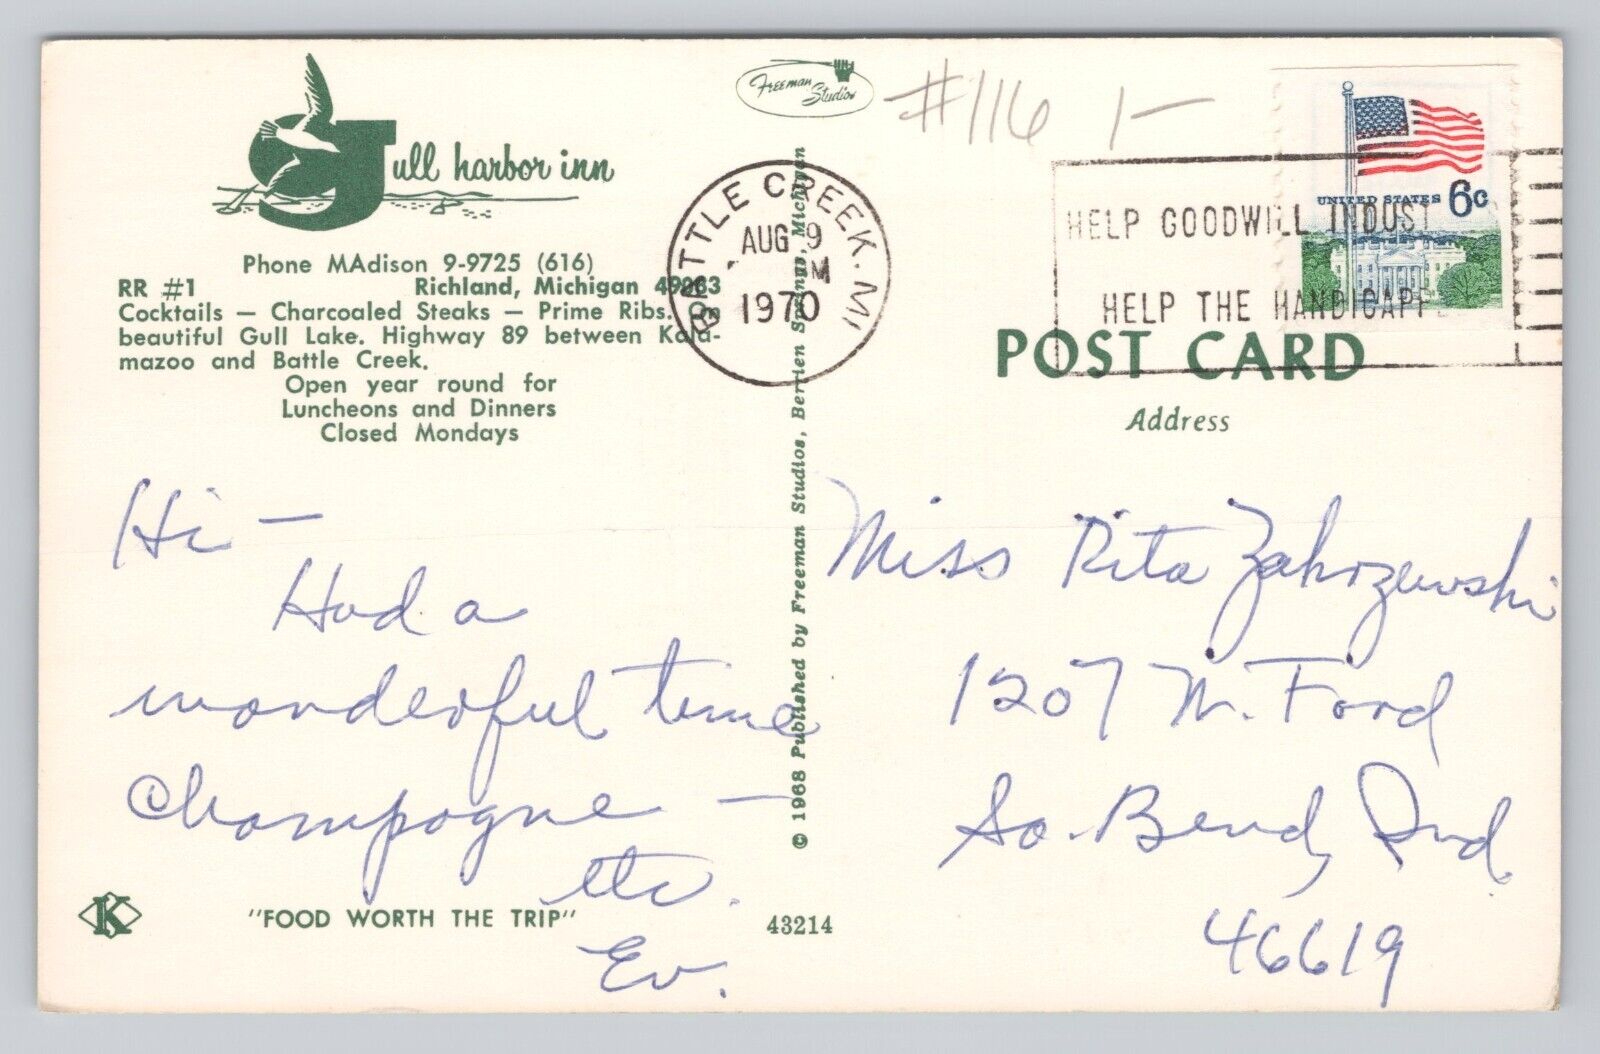 Gull harbor inn
Phone MAdison 9-9725 (616)
RR #1 Richland, Michigan 49083
Cocktails — Charcoaled Steaks — Prime Ribs. On
beautiful Gull Lake. Highway 89 between Kala-
mazoo and Battle Creek.
Open year round for
Luncheons and Dinners
Closed Mondays
Hi —
Had a
wonderful time
Champagne —
etc.
Ev.
"FOOD WORTH THE TRIP"
K
43214
© 1968 Published by Freeman Studios, Berrien Springs, Michigan
Freeman
Studios
#116 1-
BATTLE CREEK. MI
AUG 9
M
1970
HELP GOODWILL INDUST
HELP THE HANDICAPPE
UNITED STATES 6c
POST CARD
Address
Miss Rita Zakrzewski
1207 N. Ford
So. Bend, Ind.
46619